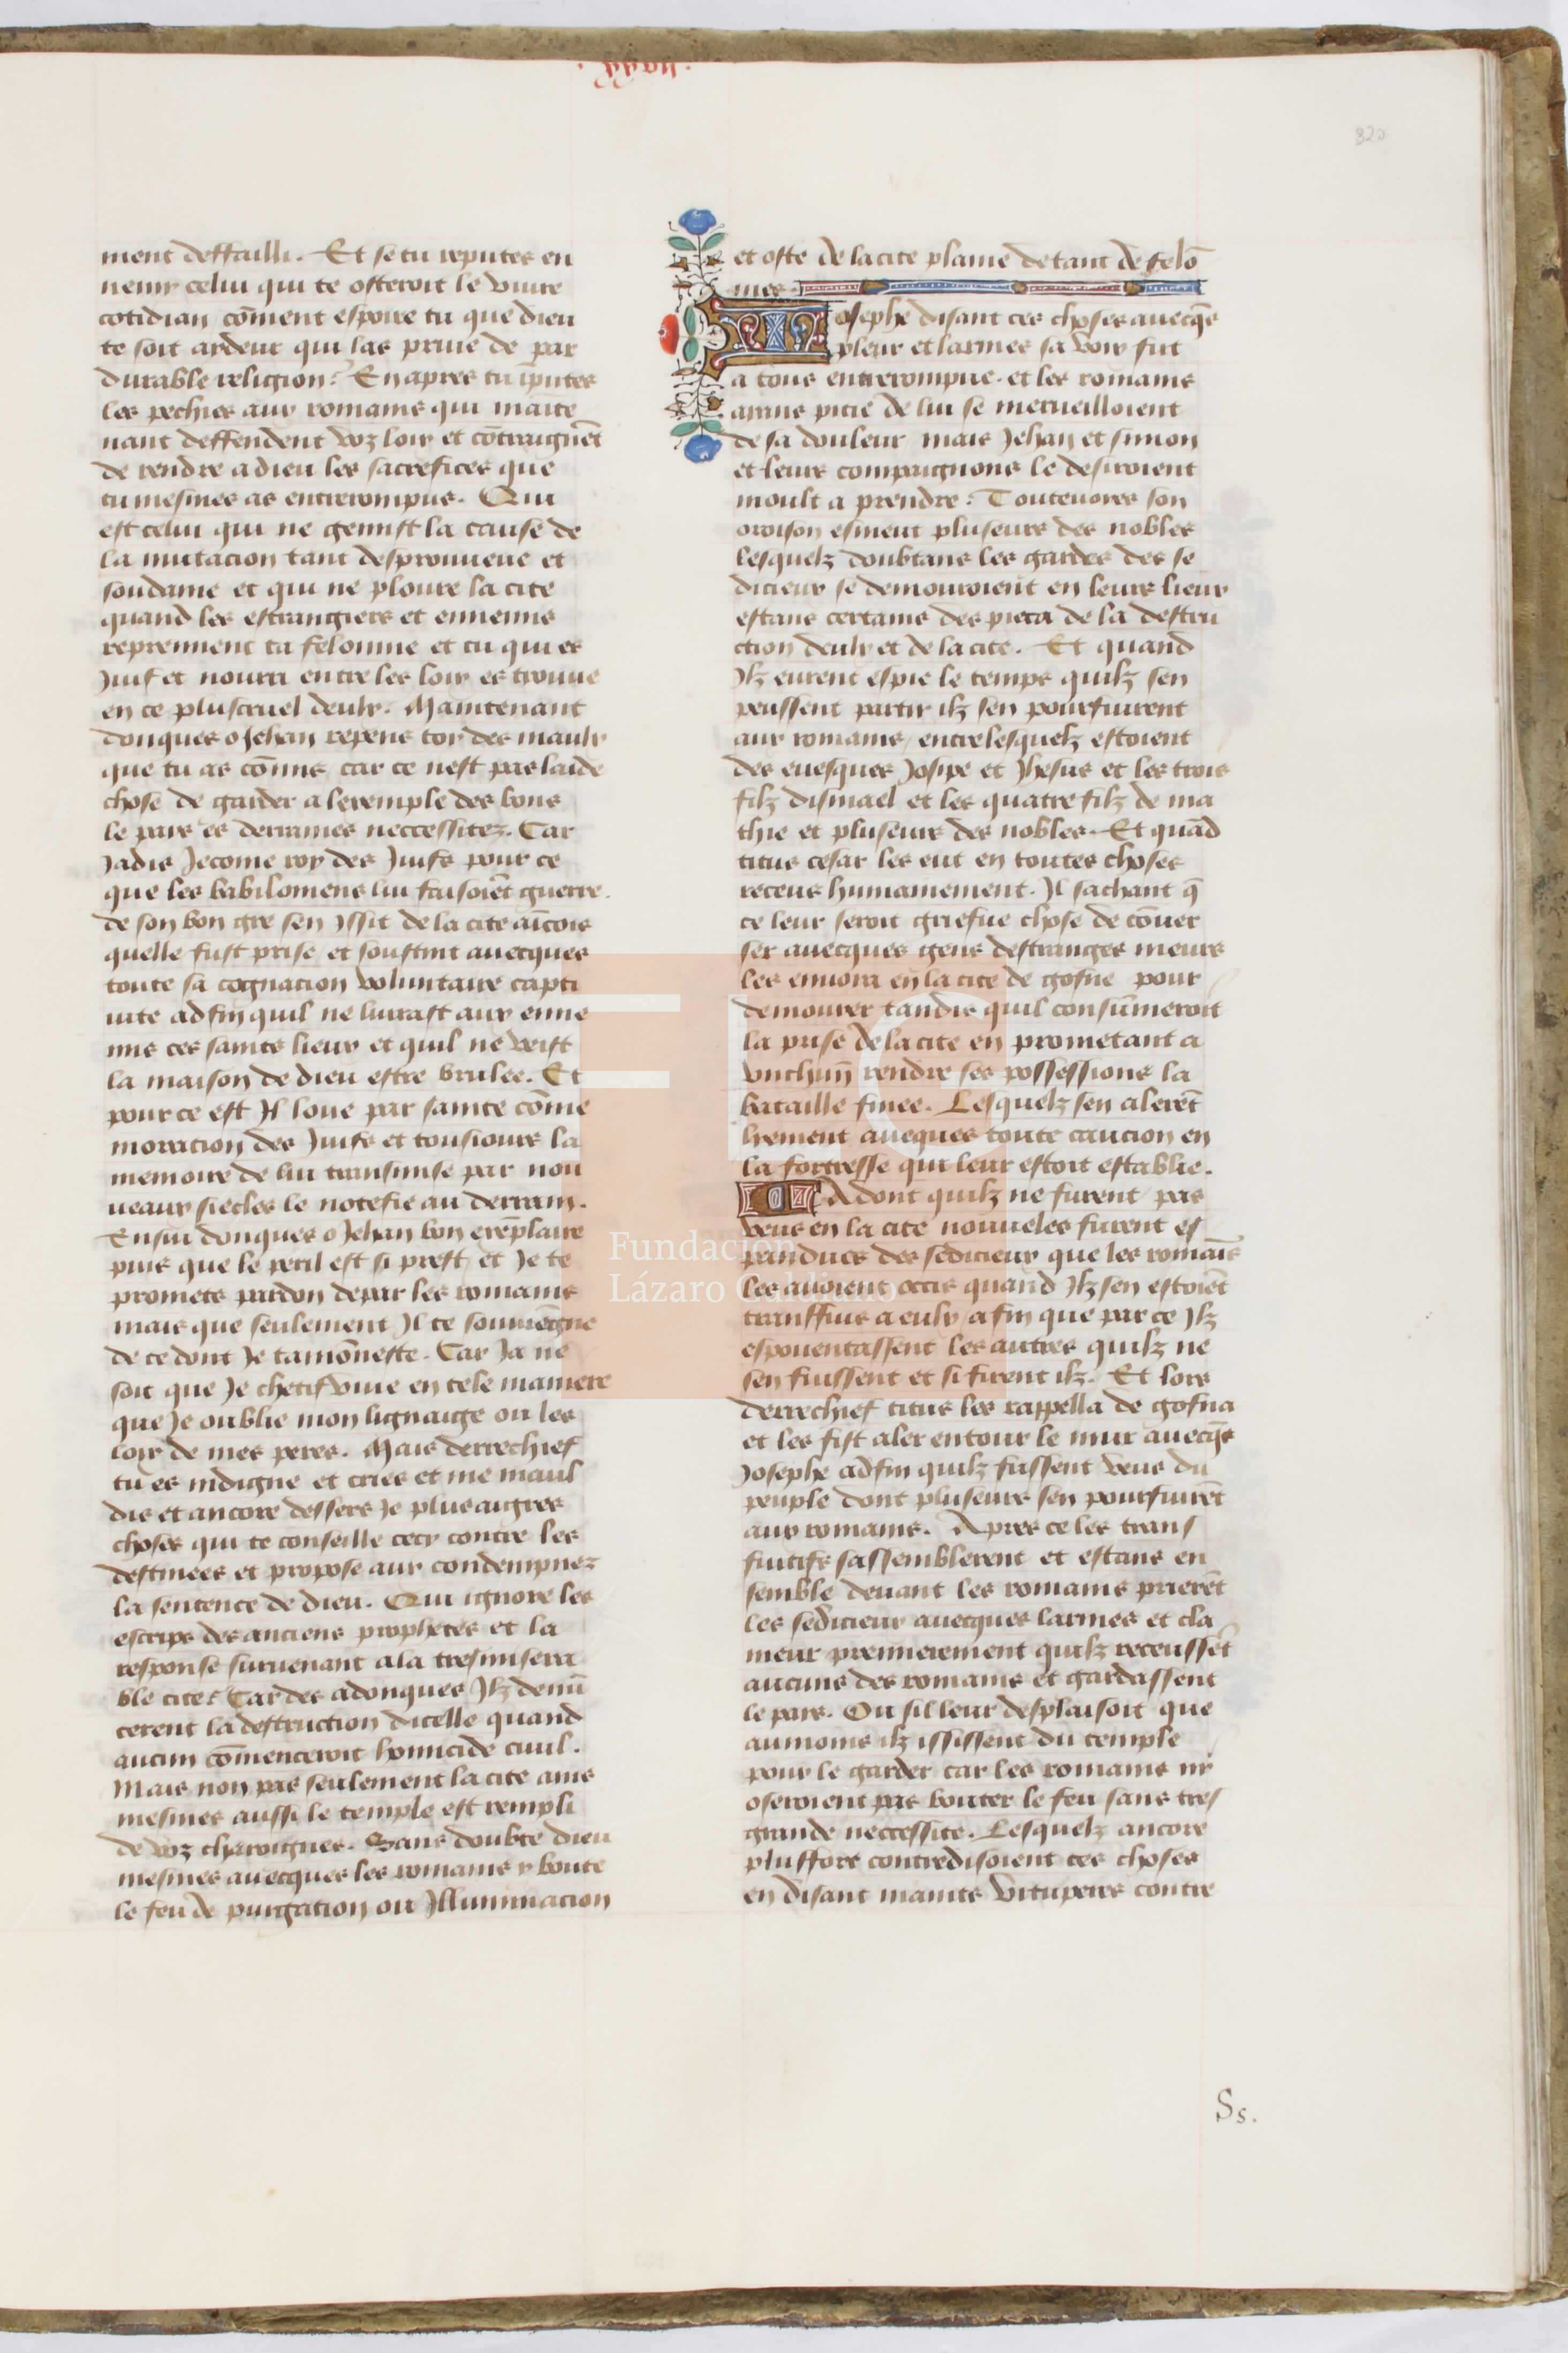 320
ment deffailli. Et se tu reputes en
nemy celui qui te osteroit le viure
cotidian cōment espoire tu que dieu
te soit ardeur qui las priue de par
durable religion? En apres tu īputes
les pechies aux romains qui mainte
nant deffendent voz loix et cōtraignēt
de rendre a dieu les sacrefices que
tu mesmes as entrerompus. Qui
est celui qui ne gemist la cause de
la mutacion tant despourueue et
soudaine et qui ne ploure la cite
quand les estrangiers et ennemis
reprennent ta felonnie et tu qui es
Juif et nourri entre les loix es trouue
en ce plus cruel deulx. Maintenant
donques o Jehan repens toy des maulx
que tu as cōmis car ce nest pas laide
chose de garder a lexemple des bons
le pais es derraines neccessitez. Car
Jadis Jecome roy des Juifs pour ce
que les babiloniens lui faisoiēt guerre
de son bon gre sen yssit de la cite aīcois
quelle fust prise et soustint auecques
toute sa cognacion voluntaire capti
uite ad fin quil ne liurast aux enne
mis ces sains lieux et quil ne veist
la maison de dieu estre brulee. Et
pour ce est Il loue par sainte cōme
moracion des Juifs et tousiours la
memoire de lui transmise par nou
ueaux siecles le notefie au derrain.
Ensui donques o Jehan bon exēplaire
puis que le peril est si prest et Je te
promets pardon de par les romains
mais que seulement Il te souuiēgne
de ce dont Je tamōneste. Car Ja ne
soit que Je chetif viue en tele maniere
que Je oublie mon lignaige ou les
loix de mes peres. Mais derrechief
tu es indigne et cries et me maul
dis et ancore dessers Je plus aigres
choses qui te conseille cecy contre les
destinees et propose aux condempnez
la sentence de dieu. Qui ignore les
escrips des anciens prophetes et la
response suruenant a la tresmisera
ble cite? Car des adonques Ilz denū
cerent la destruction dicelle quand
aucun cōmenceroit homicide ciuil.
Mais non pas seulement la cite ains
mesmes aussi le temple est rempli
de voz charoignes. Sans doubte dieu
mesmes auecques les romains y boute
le feu de purgation ou Illuminacion
et oste de la cite plaine de tant de felō
nies.
Josephe disant ces choses auecqs
pleur et larmes sa voix fut
a tous entrerompue. et les romains
aians pitie de lui se merueilloient
de sa douleur mais Jehan et simon
et leurs compaignons le desiroient
moult a prendre: Toutesuoies son
oroison esmeut pluseurs des nobles
lesquelz doubtans les gardes des se
dicieux se demouroient en leurs lieux
estans certains des pieca de la destru
ction deulx et de la cite. Et quand
Ilz eurent espie le temps quilz sen
peussent partir ilz sen pourfuirent
aux romains, entre lesquelz estoient
des euesques Josipe et Jhesus et les trois
filz dismael et les quatre filz de ma
thie et pluseurs des nobles. Et quād
titus cesar les eut en toutes choses
receus humainement. Il sachant q̄
ce leur seroit griefue chose de cōuer
ser auecques gens destranges meurs
les enuoia en la cite de gofne pour
demourer tandis quil consūmeroit
la prise de la cite en prometant a
vnchun̄ rendre ses possessions la
bataille finee. Lesquelz sen alerēt
liement aueques toute caucion en
la fortresse qui leur estoit establie.
Adont quilz ne furent pas
veus en la cite nouueles furent es
pandues des sedicieux que les romaīs
les auoient occis quand Ilz sen estoiēt
tranffuis a eulx afin que par ce Ilz
espouentassent les autres quilz ne
sen fuissent et si firent ilz. Et lors
derrechief titus les rappella de gofna
et les fist aler entour le mur auecqs
Josephe ad fin quilz fussent veus du
peuple dont pluseurs sen pourfuirēt
aux romains. Apres ce les trans
fuitifs sassemblerent et estans en
semble deuant les romains prierēt
les sedicieux auecques larmes et cla
meur premierement quilz receussēt
aucuns des romains et gardassent
le pais. Ou sil leur desplaisoit que
aumoins ilz ississent du temple
pour le garder car les romains ny
oseroient pas bouter le feu sans tres
grande neccessite. Lesquelz ancore
plus fort contredisoient ces choses
en disant maints vituperes contre
Ss.
Fundación
Lázaro Galdiano